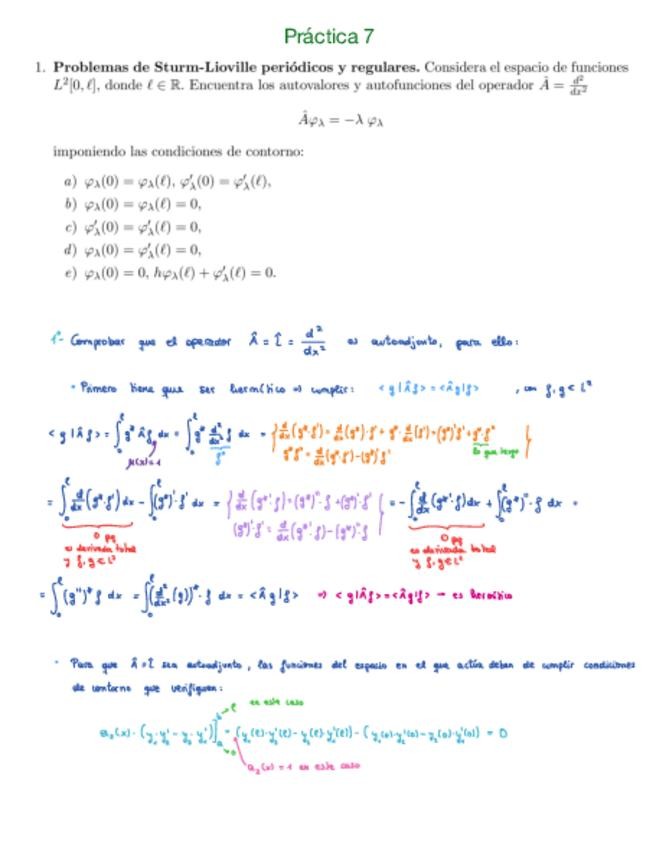 Práctica 7
1. Problemas de Sturm-Lioville periódicos y regulares. Considera el espacio de funciones
L²[0, ℓ], donde ℓ ∈ ℝ. Encuentra los autovalores y autofunciones del operador Â = d²/dx²
Âφ_λ = −λ φ_λ
imponiendo las condiciones de contorno:
a) φ_λ(0) = φ_λ(ℓ), φ'_λ(0) = φ'_λ(ℓ),
b) φ_λ(0) = φ_λ(ℓ) = 0,
c) φ'_λ(0) = φ'_λ(ℓ) = 0,
d) φ_λ(0) = φ'_λ(ℓ) = 0,
e) φ_λ(0) = 0, hφ_λ(ℓ) + φ'_λ(ℓ) = 0.
1º- Comprobar que el operador Â = L̂ = d²/dx² es autoadjunto, para ello:
• Primero tiene que ser hermítico ⇒ cumplir: <g|Âf> = <Âg|f> , con f, g ∈ L²
<g|Âf> = ∫₀^ℓ g* Âf dx = ∫₀^ℓ g* d²/dx² f dx = { d/dx (g*·f') = d/dx (g*)·f' + g* · d/dx (f') = (g*)'f' + g*f''
μ(x)=1 f'' g*f'' = d/dx (g*·f') − (g*)'f' lo que tengo }
= ∫₀^ℓ d/dx (g*·f') dx − ∫₀^ℓ (g*)'·f' dx = { d/dx (g*'·f) = (g*)''·f + (g*)'·f' = − ∫₀^ℓ d/dx (g*'·f) dx + ∫₀^ℓ (g*)''·f dx =
(g*)'·f' = d/dx (g*'·f) − (g*)''·f }
0 pq 0 pq
es derivada total es derivada total
y f, g ∈ L² y f, g ∈ L²
= ∫₀^ℓ (g'')* f dx = ∫₀^ℓ (d²/dx² (g))* · f dx = <Âg|f> ⇒ <g|Âf> = <Âg|f> → es hermítico
• Para que Â = L̂ sea autoadjunto, las funciones del espacio en el que actúa deben de cumplir condiciones
de contorno que verifiquen:
b → ℓ en este caso
a₂(x) · (y₁·y₂' − y₂·y₁')]ₐᵇ = (y₁(ℓ)·y₂'(ℓ) − y₂(ℓ)·y₁'(ℓ)) − (y₁(0)·y₂'(0) − y₂(0)·y₁'(0)) = 0
a → 0
a₂(x) = 1 en este caso